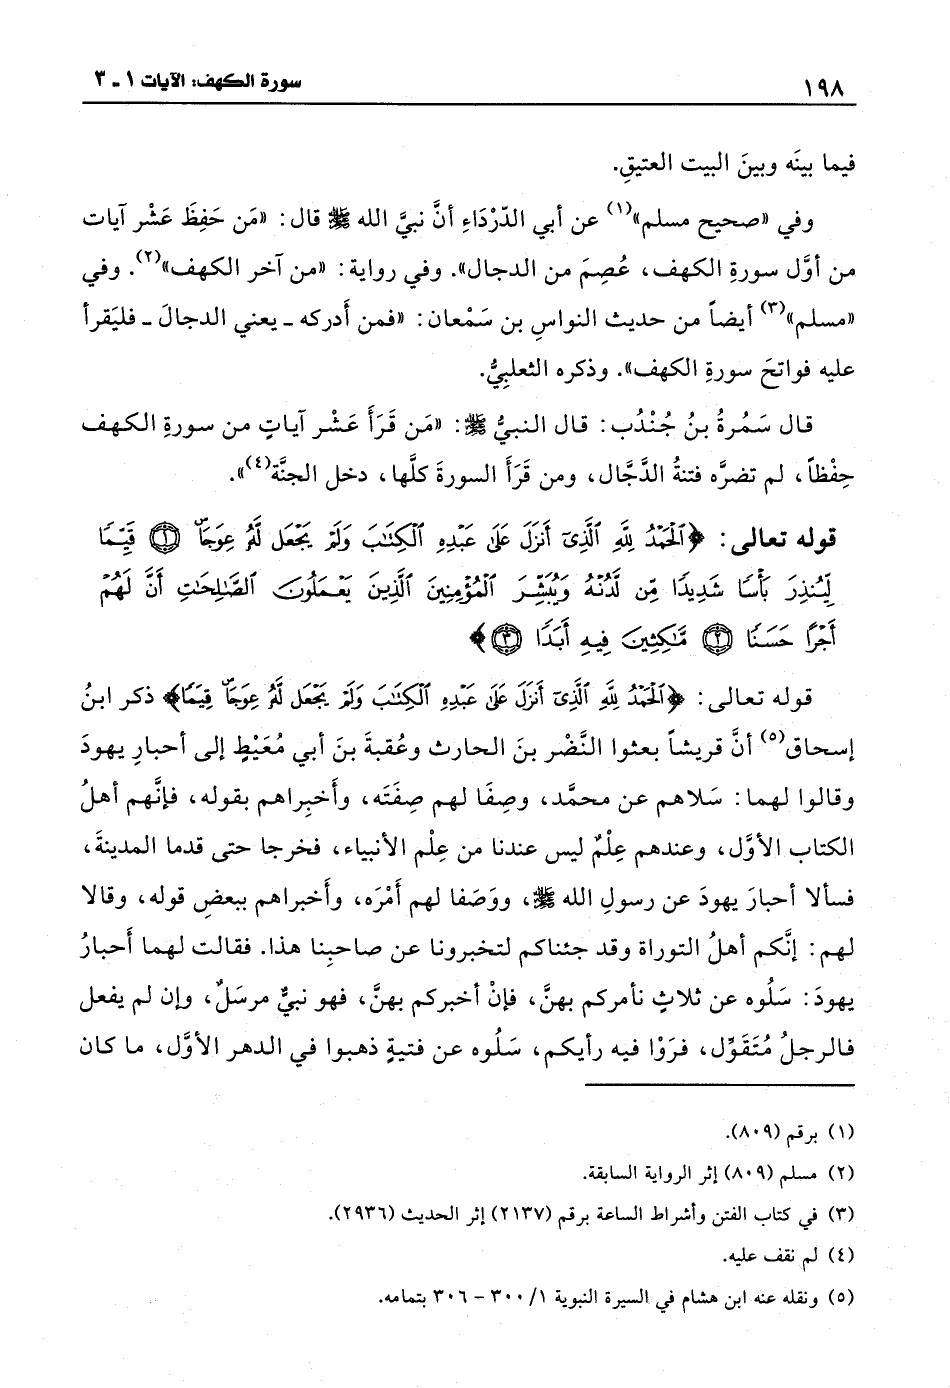 ١٩٨ سورة الكهف: الآيات ١ ـ ٣
فيما بينَه وبينَ البيت العتيقِ.
وفي «صحيح مسلم»(١) عن أبي الدّرْدَاءِ أنَّ نبيَّ الله ﷺ قال: «مَن حَفِظَ عَشْر آيات
من أوَّل سورةِ الكهف، عُصِمَ من الدجال». وفي رواية: «من آخر الكهف»(٢). وفي
«مسلم»(٣) أيضاً من حديث النواسِ بن سَمْعان: «فمن أَدركه ـ يعني الدجالَ ـ فليَقرأ
عليه فواتحَ سورةِ الكهف». وذكره الثعلبِيُّ.
قال سَمُرةُ بنُ جُنْدُب: قال النبيُّ ﷺ: «مَن قَرَأَ عَشْر آياتٍ من سورةِ الكهف
حِفْظاً، لم تضرَّه فتنةُ الدَّجَّال، ومن قَرَأَ السورةَ كلَّها، دخل الجنَّة(٤)».
قوله تعالى: ﴿اَلْحَمْدُ لِلَّهِ اَلَّذِىٓ أَنزَلَ عَلَىٰ عَبْدِهِ اَلْكِتَٰبَ وَلَمْ يَجْعَل لَّهُۥ عِوَجَاۜ ۝١ قَيِّمًا
لِّيُنذِرَ بَأْسًا شَدِيدًا مِّن لَّدُنْهُ وَيُبَشِّرَ اَلْمُؤْمِنِينَ اَلَّذِينَ يَعْمَلُونَ اَلصَّٰلِحَٰتِ أَنَّ لَهُمْ
أَجْرًا حَسَنًا ۝٢ مَّٰكِثِينَ فِيهِ أَبَدًا ۝٣﴾
قوله تعالى: ﴿اَلْحَمْدُ لِلَّهِ اَلَّذِىٓ أَنزَلَ عَلَىٰ عَبْدِهِ اَلْكِتَٰبَ وَلَمْ يَجْعَل لَّهُۥ عِوَجَاۜ قَيِّمًا﴾ ذكر ابنُ
إسحاق(٥) أنَّ قريشاً بعثوا النَّضْر بنَ الحارث وعُقبةَ بنَ أبي مُعَيْطٍ إلى أحبارِ يهودَ
وقالوا لهما: سَلاهم عن محمَّد، وصِفَا لهم صِفَتَه، وأَخبِراهم بقوله، فإنَّهم أهلُ
الكتاب الأوَّل، وعندهم عِلْمٌ ليس عندنا من عِلْم الأنبياء، فخرجا حتى قدما المدينةَ،
فسألا أحبارَ يهودَ عن رسولِ الله ﷺ، ووَصَفا لهم أَمْرَه، وأخبراهم ببعضِ قوله، وقالا
لهم: إنَّكم أهلُ التوراة وقد جئناكم لتخبرونا عن صاحبِنا هذا. فقالت لهما أَحبارُ
يهودَ: سَلُوه عن ثلاثٍ نأمركم بهنَّ، فإنْ أخبركم بهنَّ، فهو نبيٌّ مرسَلٌ، وإن لم يفعل
فالرجلُ مُتَقَوِّل، فرَوْا فيه رأيكم، سَلُوه عن فتيةٍ ذهبوا في الدهر الأوَّل، ما كان
(١) برقم (٨٠٩).
(٢) مسلم (٨٠٩) إثر الرواية السابقة.
(٣) في كتاب الفتن وأشراط الساعة برقم (٢١٣٧) إثر الحديث (٢٩٣٦).
(٤) لم نقف عليه.
(٥) ونقله عنه ابن هشام في السيرة النبوية ٣٠٠/١ – ٣٠٦ بتمامه.